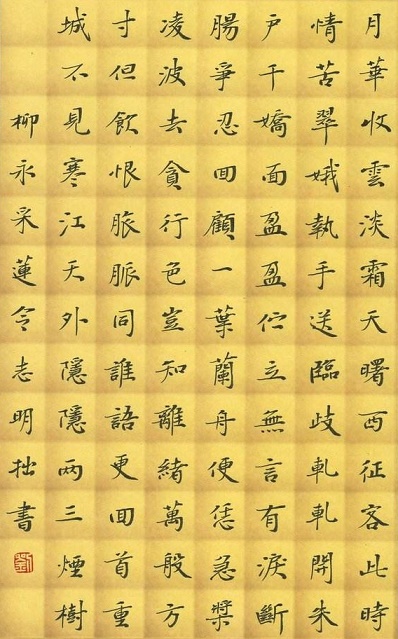 月華收雲淡霜天曙西征客此時
情苦翠娥執手送臨歧軋軋開朱
戶千嬌面盈盈伫立無言有淚斷
腸爭忍回顧一葉蘭舟便恁急槳
凌波去貪行色豈知離緒萬般方
寸但飲恨脈脈同誰語更回首重
城不見寒江天外隱隱兩三煙樹
柳永采蓮令志明拙書